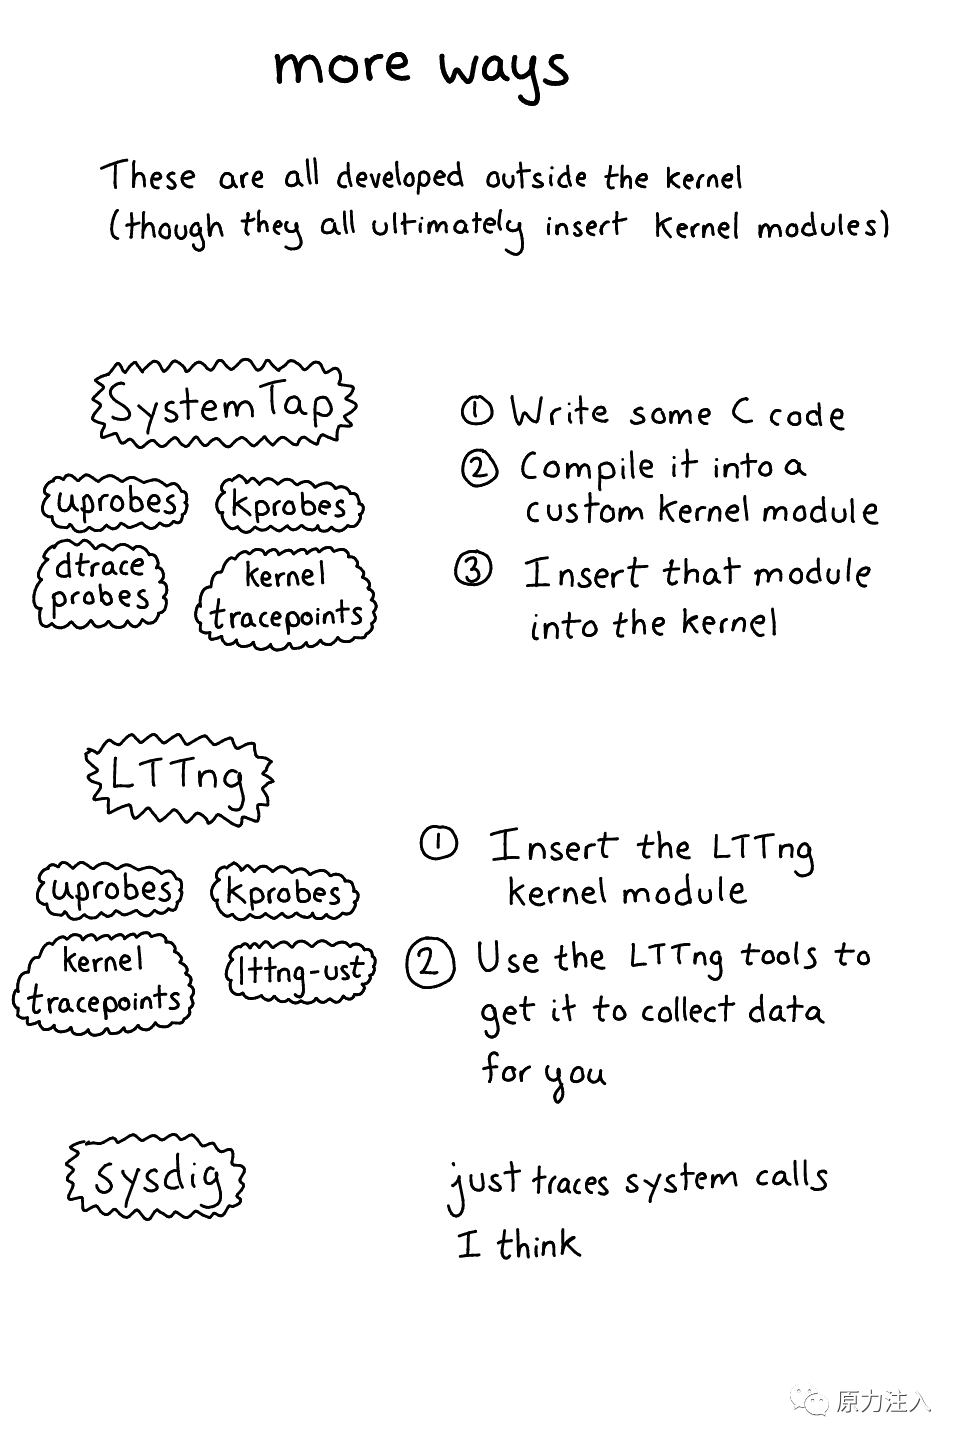 more ways
These are all developed outside the kernel
(though they all ultimately insert kernel modules)
SystemTap
uprobes
kprobes
dtrace
probes
kernel
tracepoints
① Write some C code
② Compile it into a
custom kernel module
③ Insert that module
into the kernel
LTTng
uprobes
kprobes
kernel
tracepoints
lttng-ust
① Insert the LTTng
kernel module
② Use the LTTng tools to
get it to collect data
for you
sysdig
just traces system calls
I think
原力注入